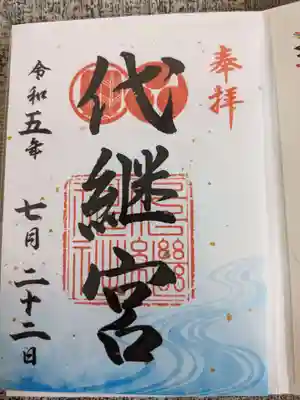 奉拝
代継宮
令和五年 七月二十二日